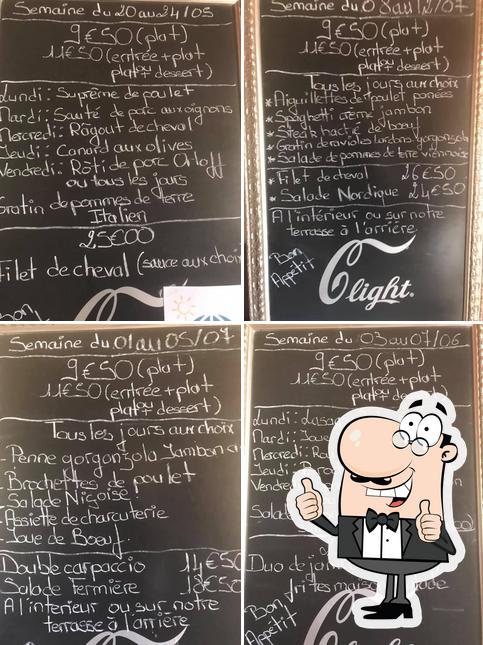 Semaine du 20 au 24/05
9€50 (plat)
11€50 (entrée + plat
ou
plat + dessert)
Lundi : Suprême de poulet
Mardi : Sauté de porc aux oignons
Mercredi : Ragout de cheval
Jeudi : Canard aux olives
Vendredi : Rôti de porc Orloff
ou tous les jours
Gratin de pommes de terre
Italien
25€00
Filet de cheval (sauce aux choix
Bon
Semaine du 08 au 12/07
9€50 (plat)
11€50 (entrée + plat
ou
plat + dessert)
Tous les jours aux choix
* Aiguillettes de poulet panées
* Spaghetti crème jambon
* Steak haché de boeuf
* Gratin de ravioles lardons gorgonzola
* Salade de pommes de terre viennoise
* Filet de cheval 26€50
* Salade Nordique 24€50
A l'intérieur ou sur notre
terrasse à l'arrière
Bon
Appétit
Clight.
Semaine du 01 au 05/07
9€50 (plat)
11€50 (entrée + plat
ou
plat + dessert)
Tous les jours aux choix
- Penne gorgonzola Jambon
- Brochettes de poulet
- Salade Niçoise
- Assiette de charcuterie
- Joue de Boeuf.
Double carpaccio 14€50
Salade Fermière 18€50
A l'interieur ou sur notre
terrasse à l'arrière
Semaine du 03 au 07/06
9€50 (plat)
11€50 (entrée + plat
ou
plat
Lundi :
Mardi :
Mercredi :
Jeudi :
Vendre
Salad
Duo de
frites maison
Bon
Appétit